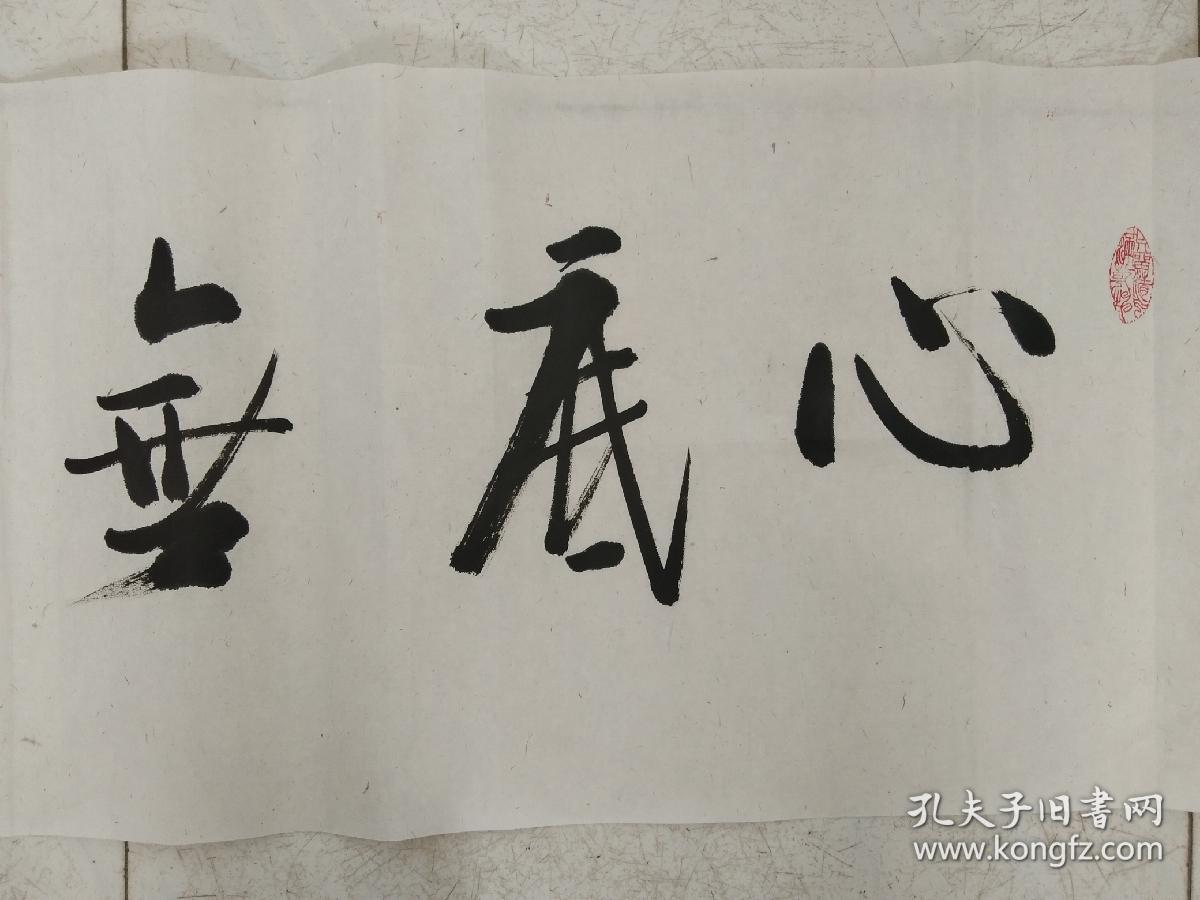 心底無
孔夫子旧書网
www.kongfz.com